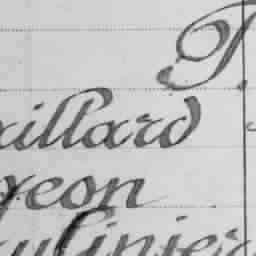 P.
aillard
geon
aulinier